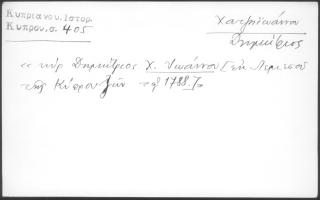 Κυπριανου. Ιστορ.
Κυπρου, σ. 405
Χατζηιωάννου
Δημήτριος
« κύρ Δημήτριος Χ. Ιωάννου [εκ Λεμεσού
της Κύπρου ζών τώ 1788]»